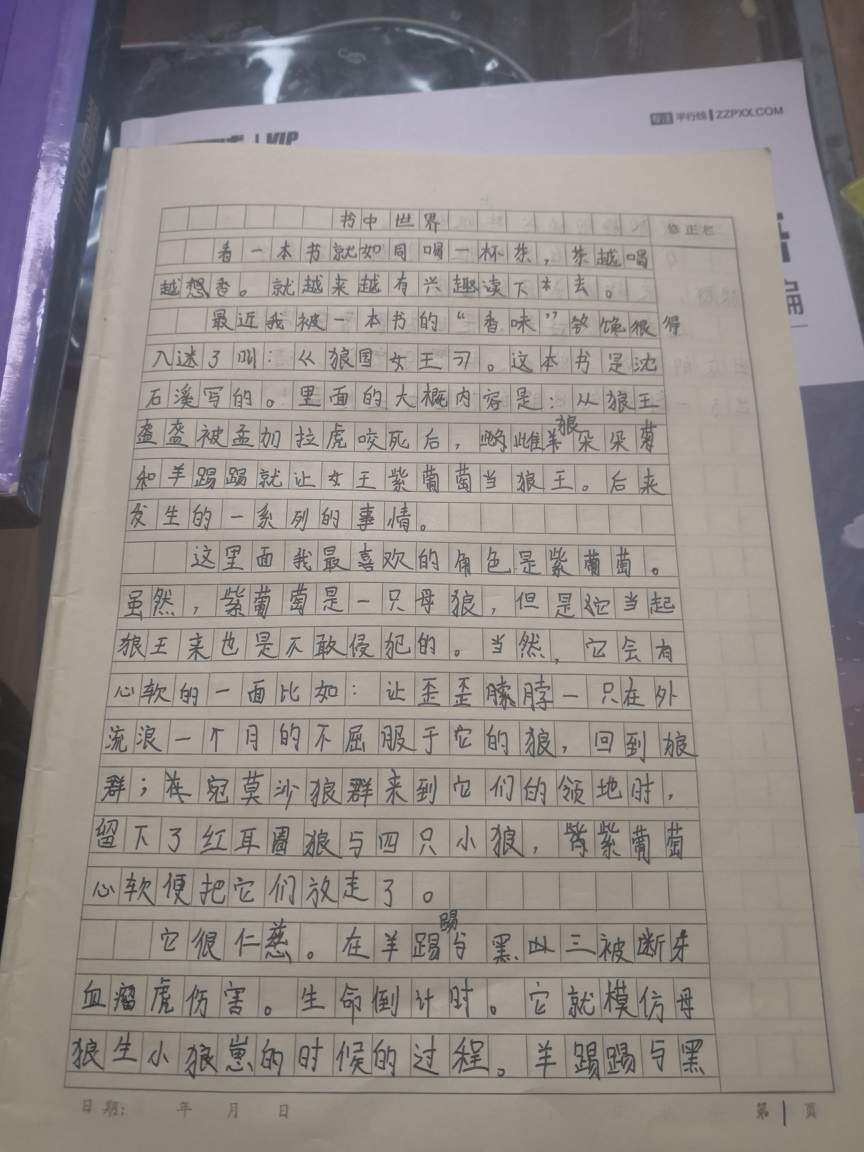 VIP
平行线 ZZPXX.COM
书中世界
修正栏
看一本书就如同喝一杯茶，茶越喝
越想香。就越来越有兴趣读下本去。
最近我被一本书的“香味”给馋很得
入迷了叫：《狼国女王》。这本书是沈
石溪写的。里面的大概内容是：从狼王
盔盔被孟加拉虎咬死后，雌狼朵朵菊
和羊踢踢就让女王紫葡萄当狼王。后来
发生的一系列的事情。
这里面我最喜欢的角色是紫葡萄。
虽然，紫葡萄是一只母狼，但是它当起
狼王来也是不敢侵犯的。当然，它会有
心软的一面比如：让歪歪脖一只在外
流浪一个月的不屈服于它的狼，回到狼
群；在宛莫沙狼群来到它们的领地时，
留下了红耳圈狼与四只小狼，紫葡萄
心软便把它们放走了。
它很仁慈。在羊踢踢与黑山三被断牙
血瘤虎伤害。生命倒计时。它就模仿母
狼生小狼崽的时候的过程。羊踢踢与黑
日期： 年 月 日
第 1 页